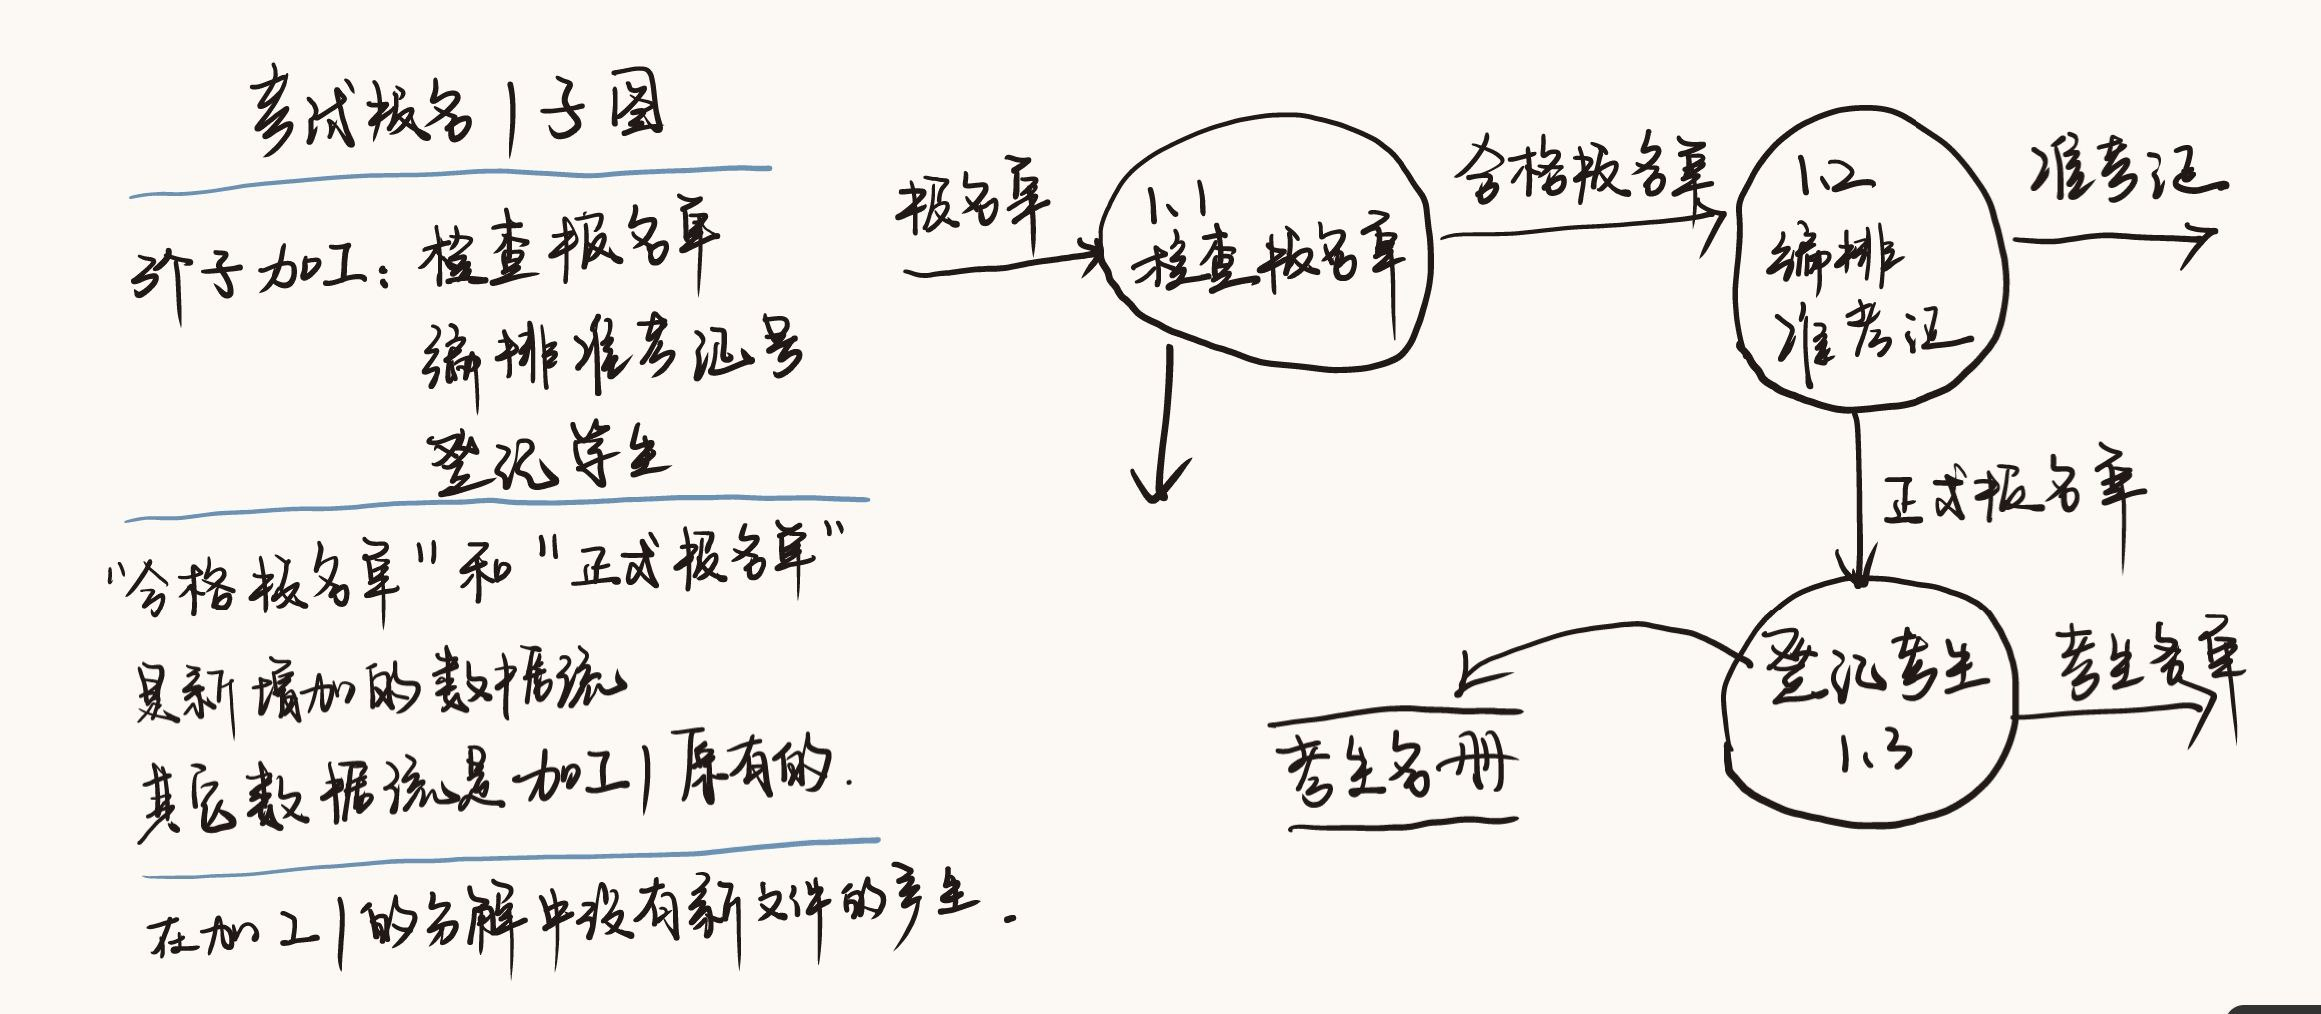 考试报名1子图
3个子加工：检查报名单
编排准考证号
登记学生
“合格报名单”和“正式报名单”
是新增加的数据流
其它数据流是加工1原有的.
在加工1的分解中没有新文件的产生.
报名单
1.1
检查报名单
合格报名单
1.2
编排
准考证
准考证
正式报名单
登记考生
1.3
考生名单
考生名册